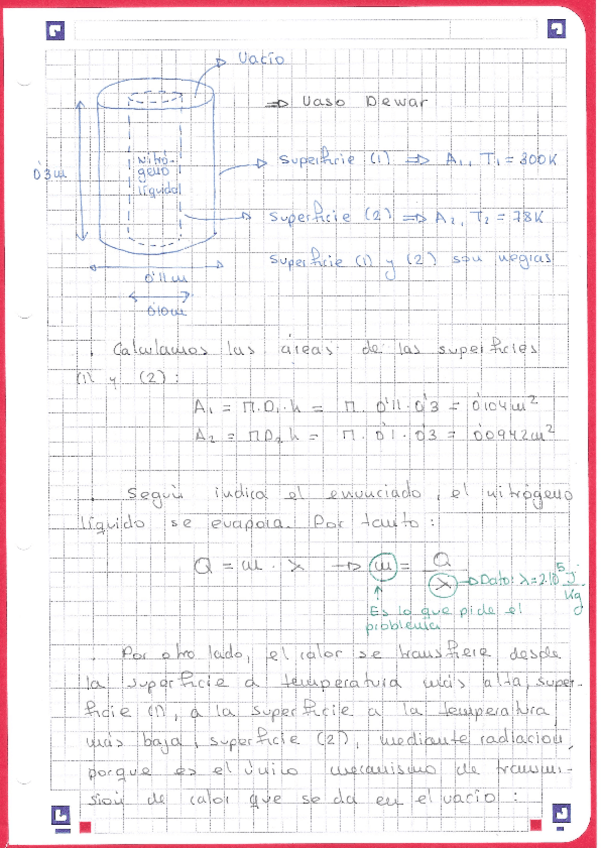 Vacío
⇒ Vaso Dewar
Nitró-
geno
líquido
0'3m
Superficie (1) ⇒ A₁, T₁ = 300K
Superficie (2) ⇒ A₂, T₂ = 78K
Superficie (1) y (2) son negras
0'11m
0'10m
. Calculamos las áreas de las superficies
(1) y (2):
A₁ = π.D₁.h = π. 0'11. 0'3 = 0'104m²
A₂ = πD₂h = π. 0'1. 0'3 = 0'0942m²
. Según indica el enunciado, el nitrógeno
líquido se evapora. Por tanto:
Q = m. λ → m = Q/λ → Dato: λ = 2.10⁵ J/kg
Es lo que pide el
problema
. Por otro lado, el calor se transfiere desde
la superficie a temperatura más alta, super-
ficie (1), a la superficie a la temperatura
más baja, superficie (2), mediante radiación,
porque es el único mecanismo de transmi-
sión de calor que se da en el vacío: